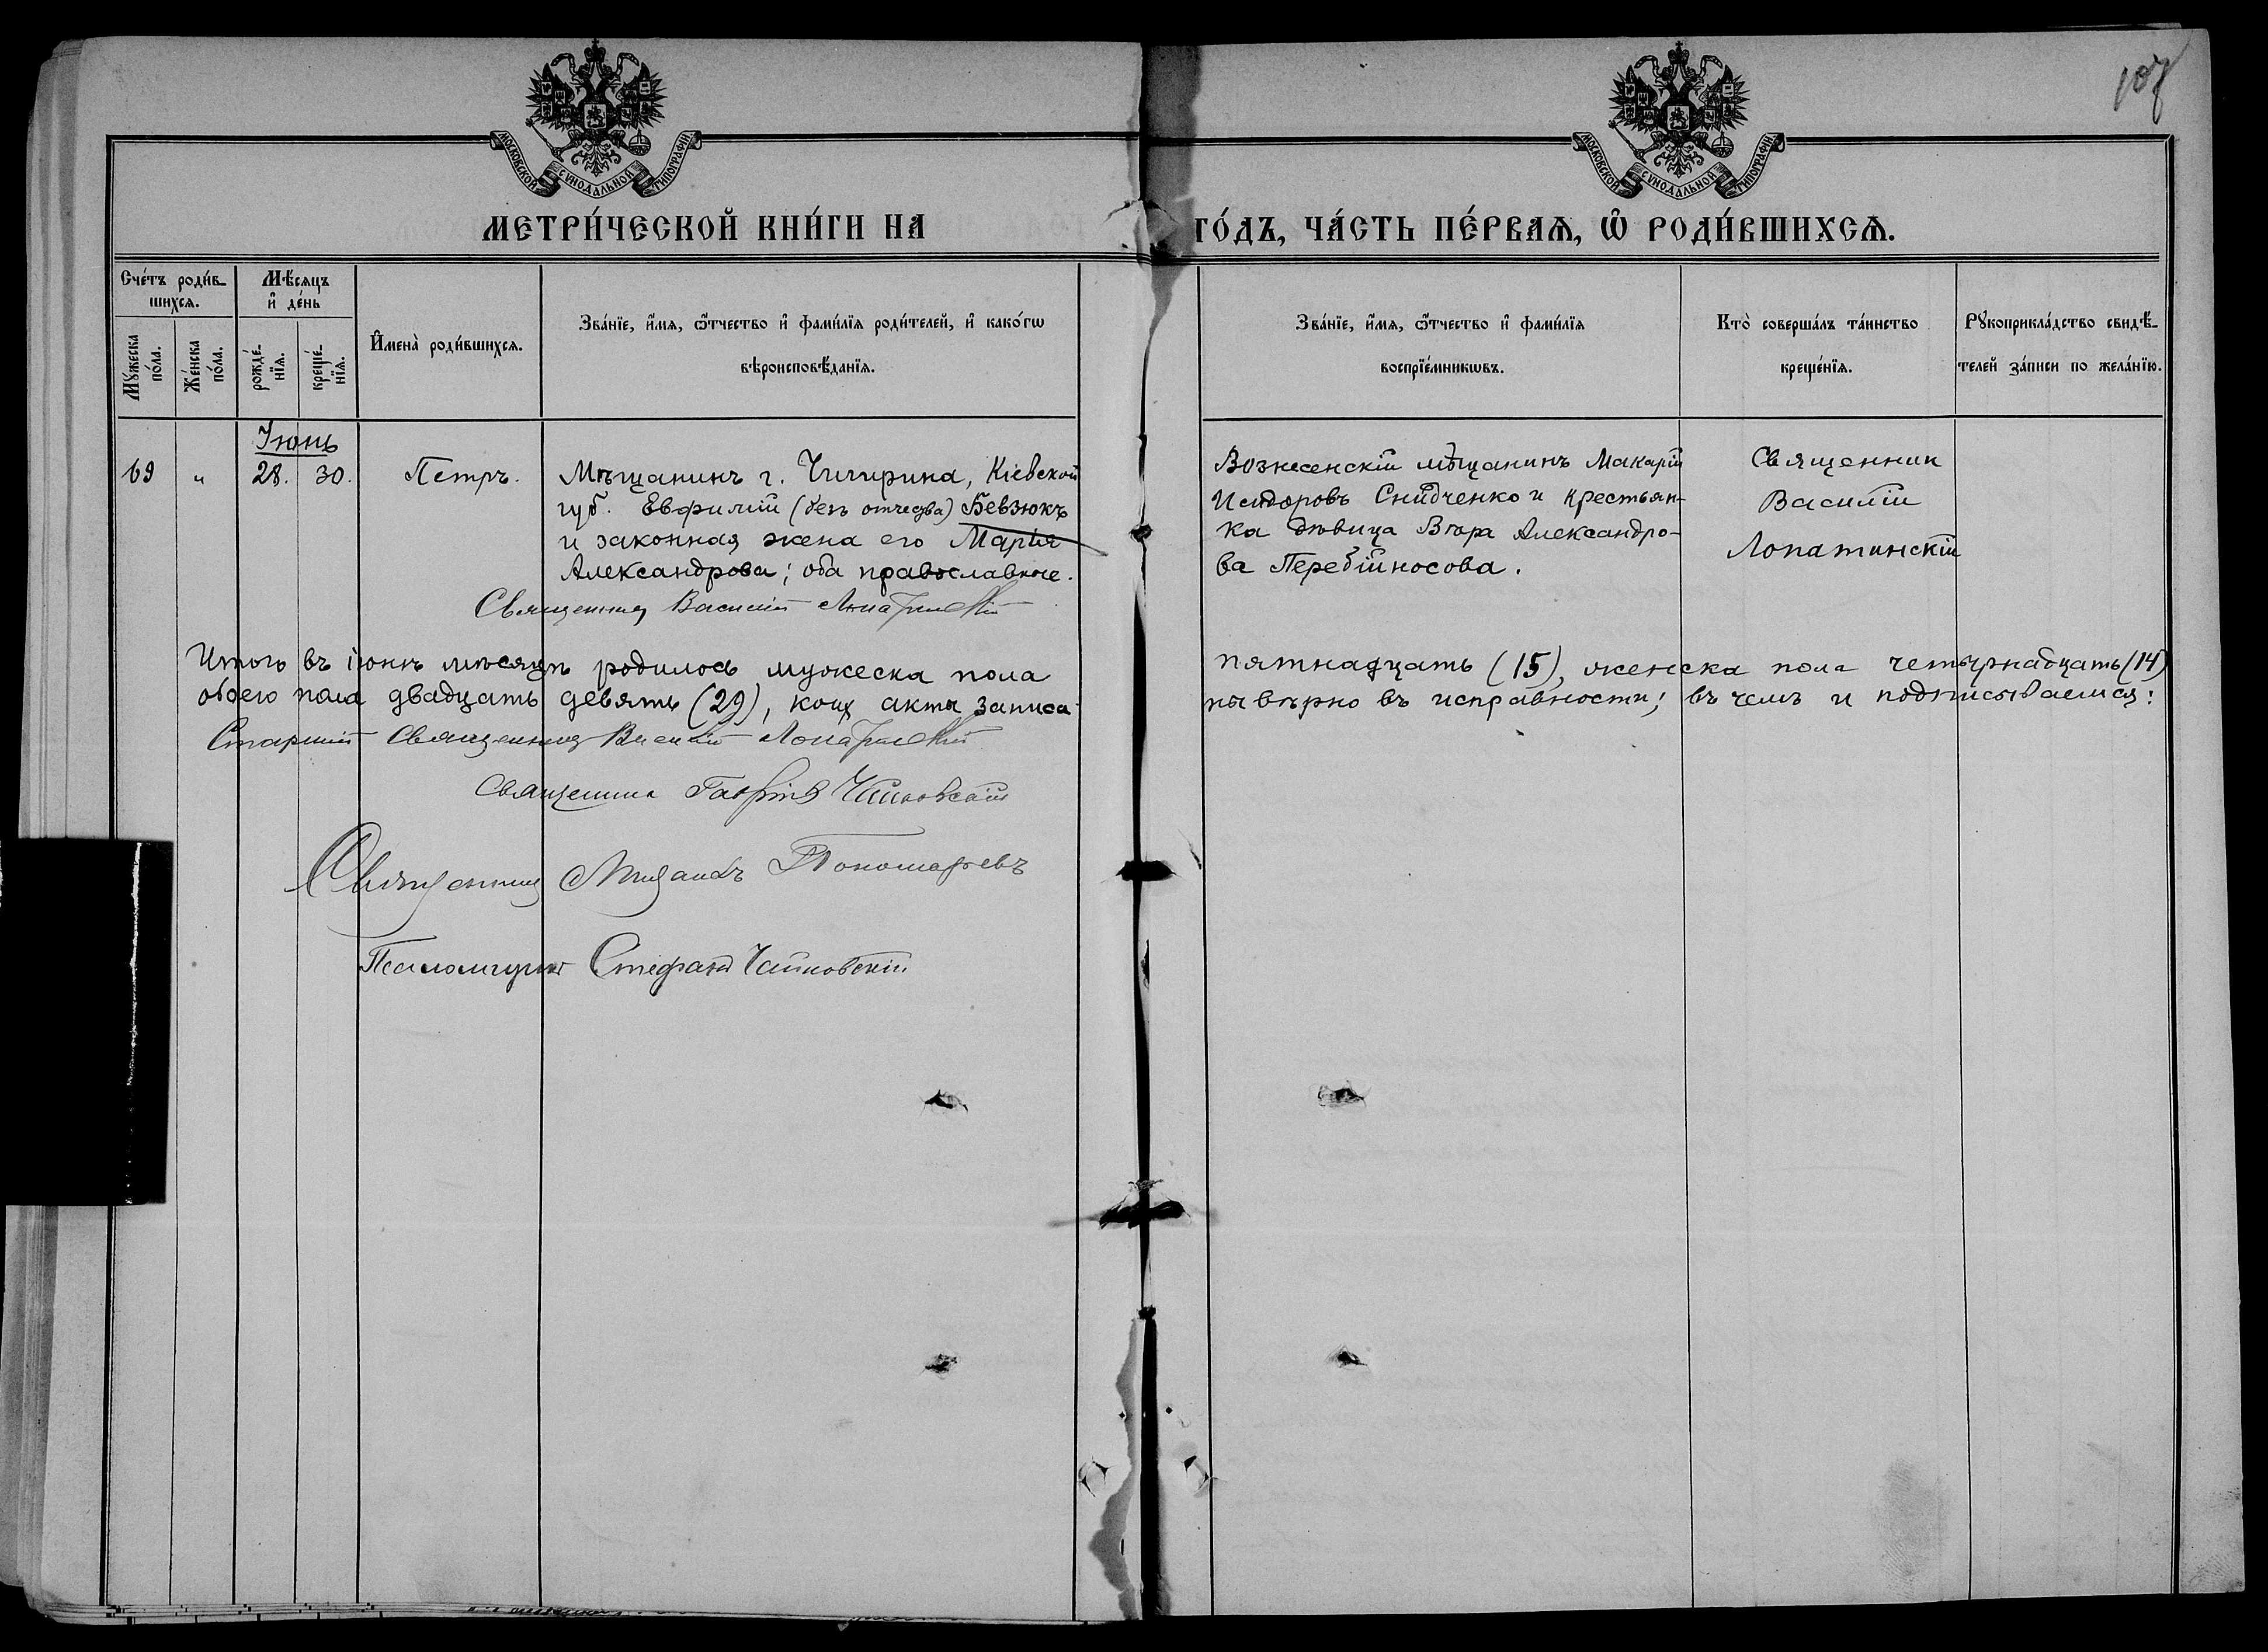 107
МОСКОВСКОЙ СѴНОДАЛЬНОЙ ТИПОГРАФІИ.
МОСКОВСКОЙ СѴНОДАЛЬНОЙ ТИПОГРАФІИ.
МЕТРИ́ЧЕСКОЙ КНИ́ГИ НА ГО́ДЪ, ЧА́СТЬ ПЕ́РВАѦ, Ѡ҆ РОДИ́ВШИХСѦ.
Сче́тъ роди́в-
шихсѧ.
Мѣ́сѧцъ
и҆ де́нь
Мꙋ́жеска
по́ла.
Же́нска
по́ла.
рожде́-
нїѧ.
креще́-
нїѧ.
И҆мена̀ роди́вшихсѧ.
Зва́нїе, и҆́мѧ, ѻ҆́тчество и҆ фами́лїѧ роди́телей, и҆ како́гѡ
вѣроисповѣ́данїѧ.
Зва́нїе, и҆́мѧ, ѻ҆́тчество и҆ фами́лїѧ
воспрїе́мникѡвъ.
Кто̀ соверша́лъ та́инство
креще́нїѧ.
Рꙋкоприкла́дство свидѣ́-
телей за́писи по жела́нїю.
Іюнь
69 " 28. 30. Петръ.
Мѣщанинъ г. Чигирина, Кіевской
губ. Евфимій (безъ отчества) Бевзюкъ
и законная жена его Марія
Александрова; оба православные.
Священник Василій Лопатинскій
Вознесенскій мѣщанинъ Макарій
Исидоровъ Снидченко и крестьян-
ка дѣвица Вѣра Александро-
ва Перебійносова.
Священник
Василій
Лопатинскій
Итого въ іюнѣ мѣсяцѣ родилось мужеска пола пятнадцать (15), женска пола четырнадцать (14)
обоего пола двадцать девять (29), коих акты записа- ны вѣрно въ исправности; въ чемъ и подписываемся:
Старшій Священник Василій Лопатинскій
Священник Гавріил Чайковскій
Священник Михаилъ Пономаревъ
Псаломщикъ Стефанъ Чайковскій